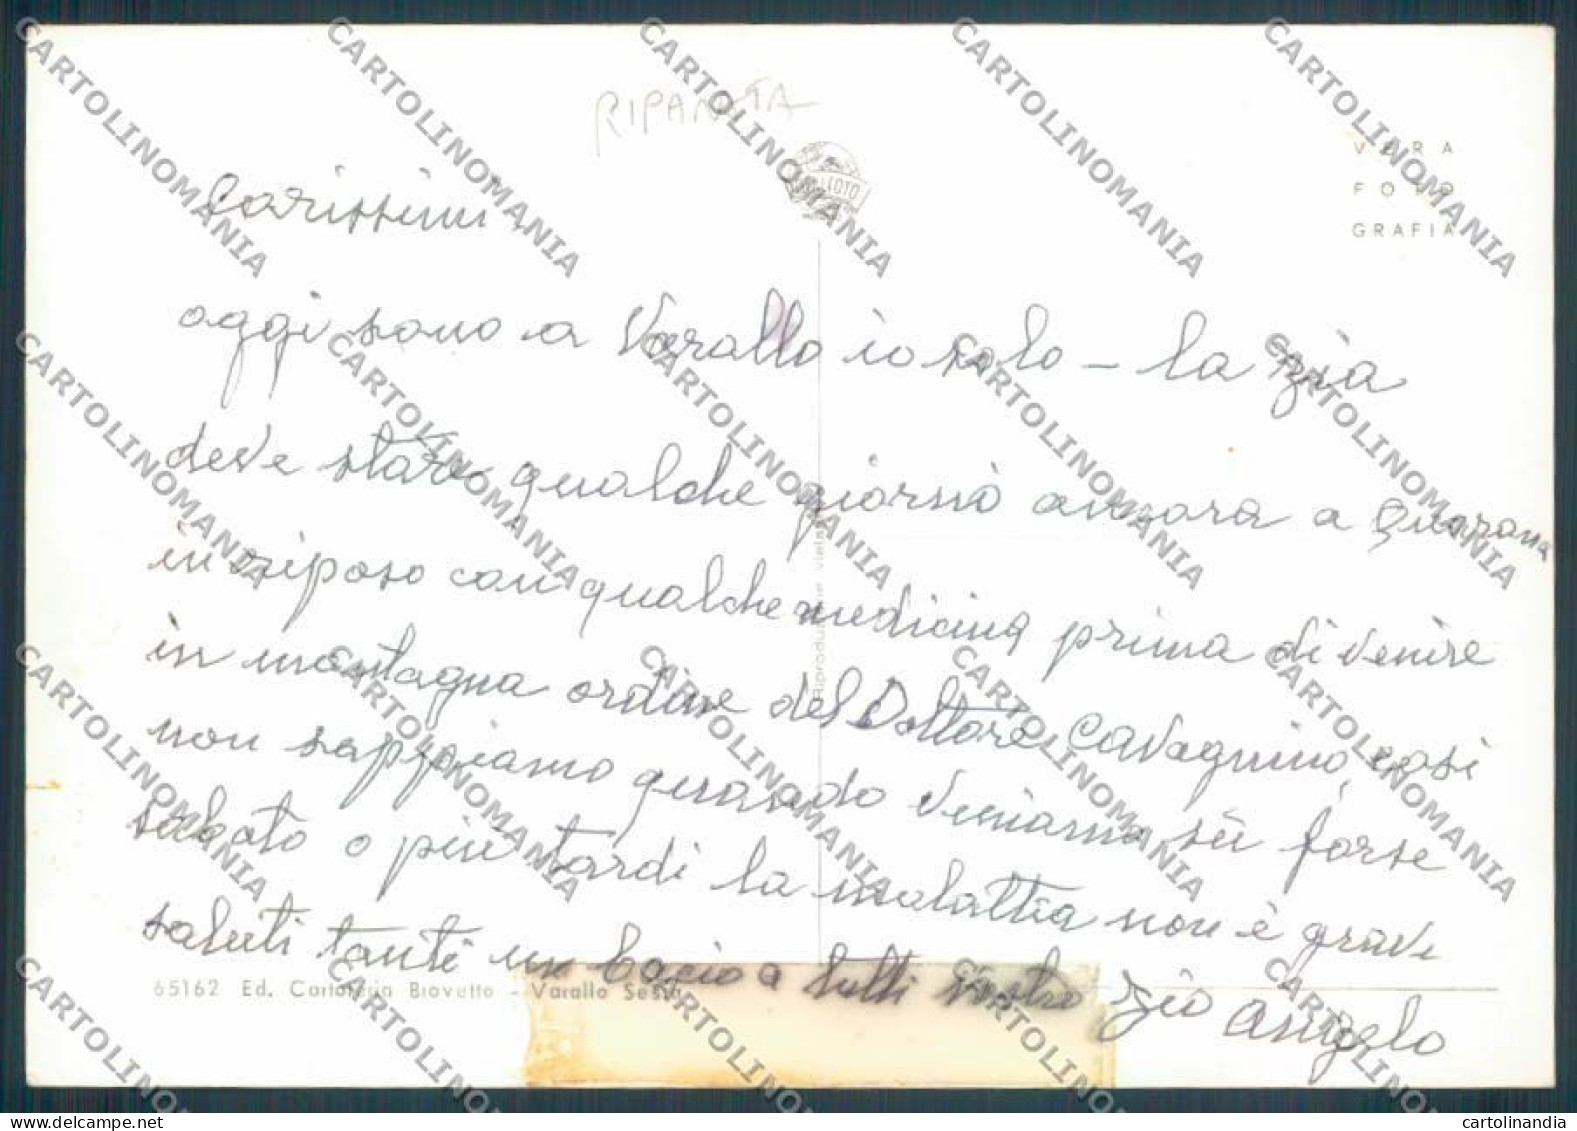 RIPARATA
VERA
FOTO
GRAFIA
Carissimi
oggi sono a Varallo io solo - la zia
deve stare qualche giorno ancora a Quarona
in riposo con qualche medicina prima di venire
in montagna ordine del Dottore Cavagnino, così
non sappiamo quando veniamo su forse
sabato o più tardi la malattia non è grave
saluti tanti un bacio a tutti vostro zio Angelo
Riproduzione vietata
65162 Ed. Cartoleria Biovetto - Varallo Sesia
CARTOLINOMANIA
www.delcampe.net
cartolinandia